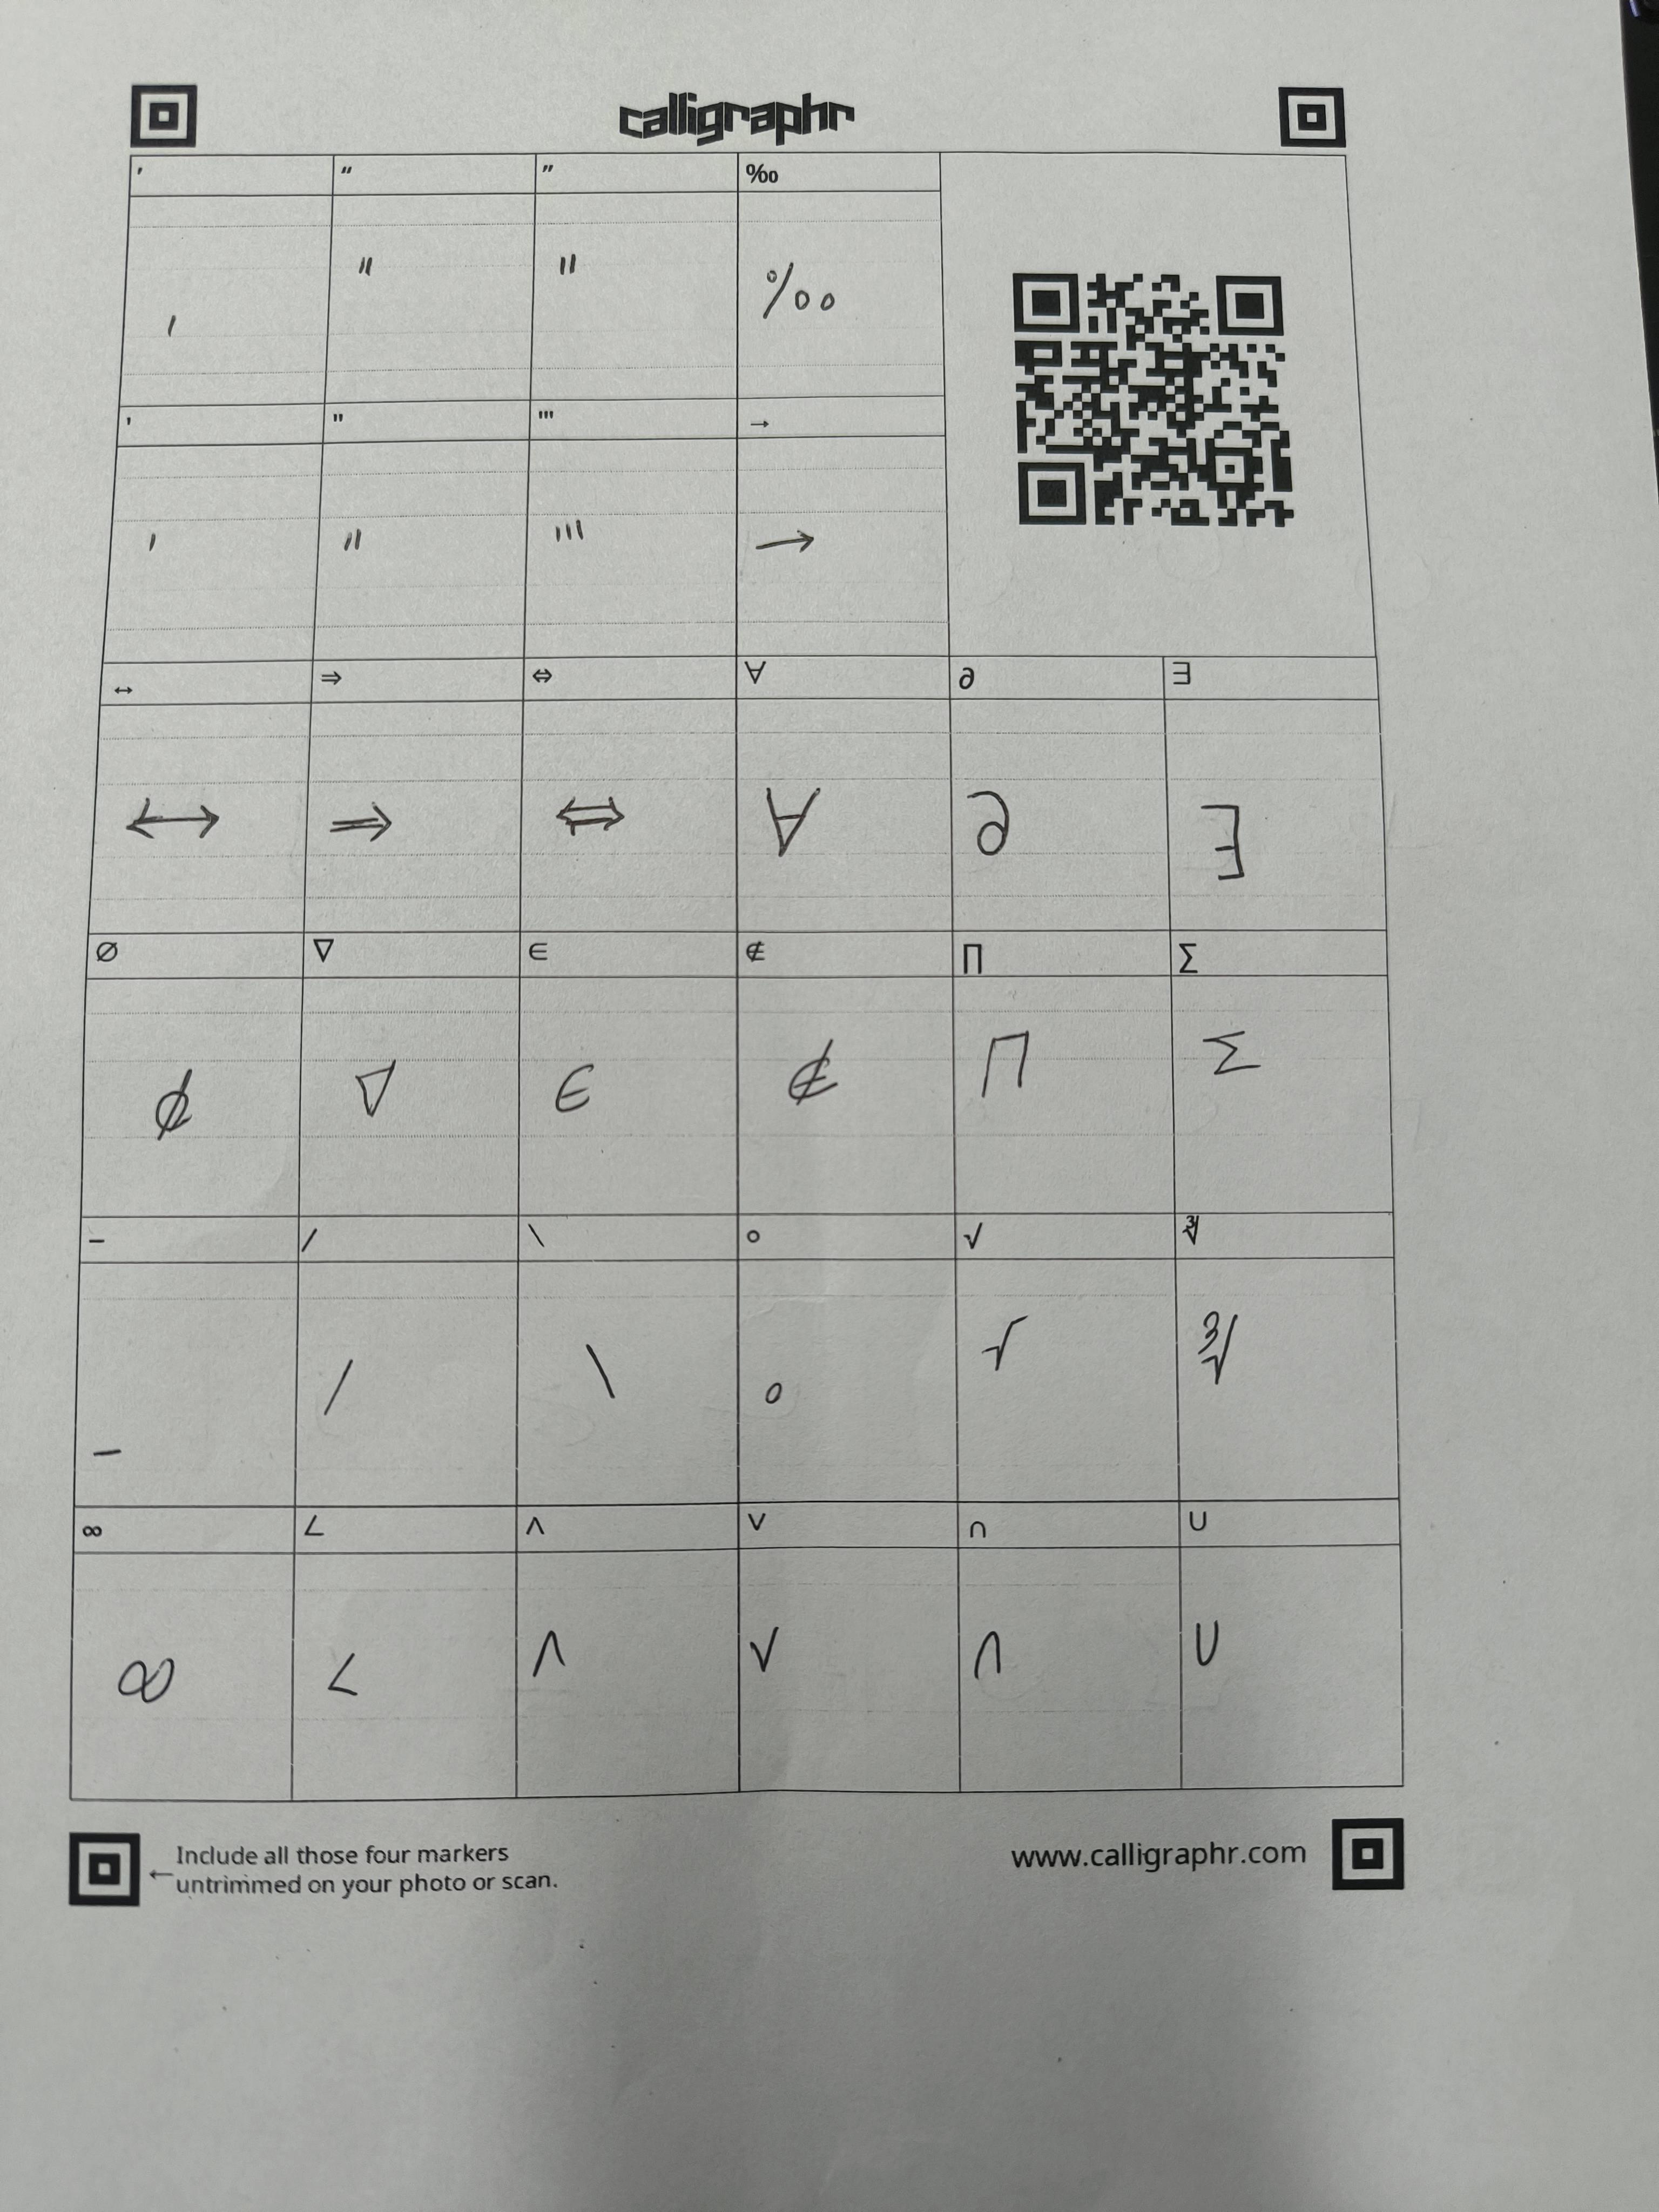 calligraphr
’ “ ” ‰
' " " ‰
′ ″ ‴ →
′ ″ ‴ →
↔ ⇒ ⇔ ∀ ∂ ∃
↔ ⇒ ⇔ ∀ ∂ ∃
∅ ∇ ∈ ∉ ∏ ∑
∅ ∇ ∈ ∉ ∏ ∑
− ∕ ∖ ∘ √ ∛
− ∕ ∖ ∘ √ ∛
∞ ∠ ∧ ∨ ∩ ∪
∞ ∠ ∧ ∨ ∩ ∪
Include all those four markers
←untrimmed on your photo or scan.
www.calligraphr.com